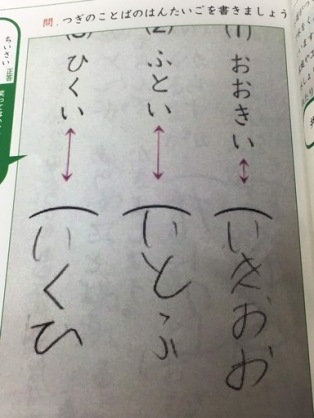 問. つぎのことばのはんたいごを書きましょう
(1) おおきい ↔ (いきおお
(2) ふとい ↔ (いとふ
(3) ひくい ↔ (いくひ
ちいさい
正答